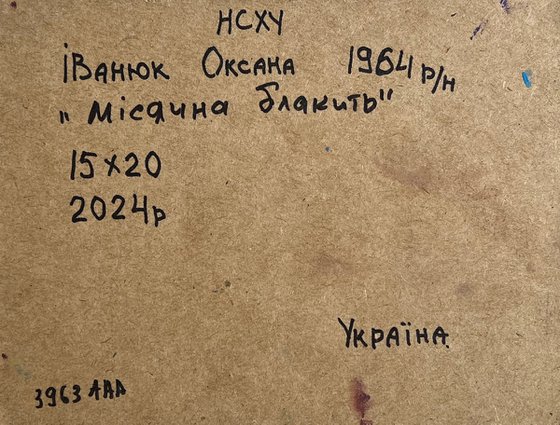 НСХУ
Іванюк Оксана 1964 р/н
„Місячна блакить"
15х20
2024р
Україна
3963 ААА